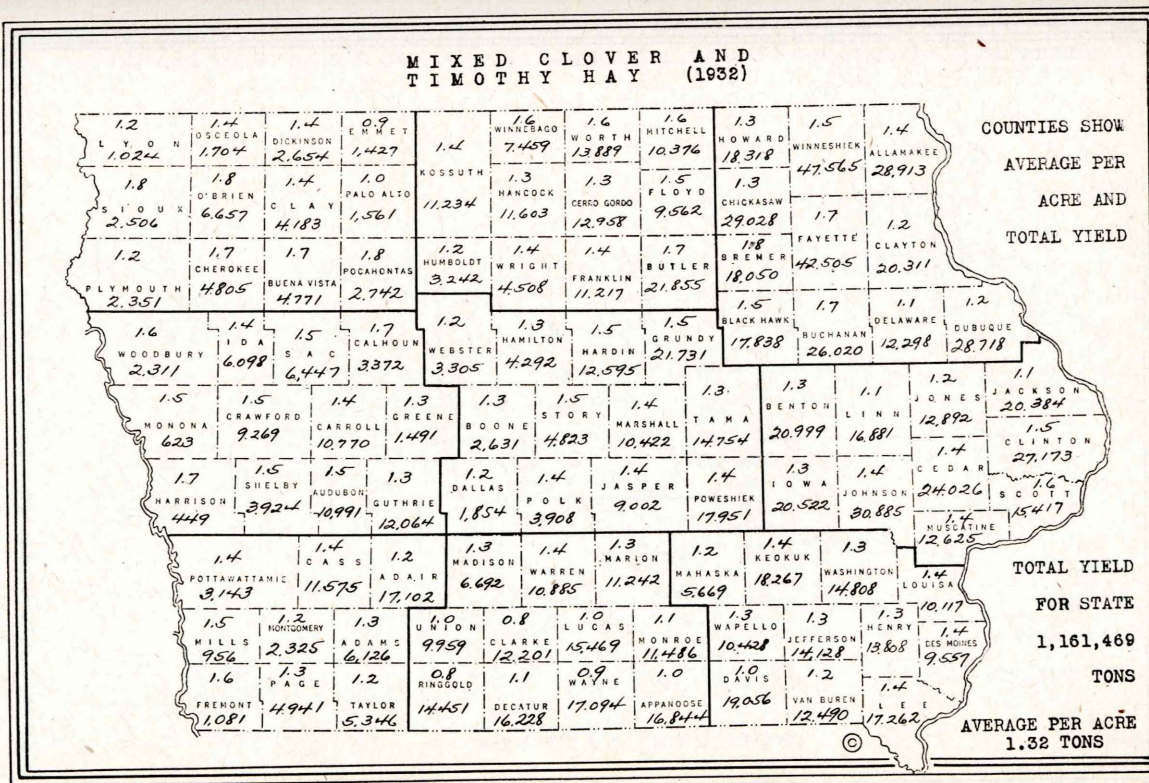 MIXED CLOVER AND
TIMOTHY HAY (1932)
COUNTIES SHOW
AVERAGE PER
ACRE AND
TOTAL YIELD
1.2
LYON
1.024
1.4
OSCEOLA
1.704
1.4
DICKINSON
2.654
0.9
EMMET
1,427
1.4
KOSSUTH
11,234
1.6
WINNEBAGO
7.459
1.6
WORTH
13.889
1.6
MITCHELL
10,376
1.3
HOWARD
18.318
1.5
WINNESHIEK
47.565
1.4
ALLAMAKEE
28,913
1.8
SIOUX
2.506
1.8
O'BRIEN
6,657
1.4
CLAY
4.183
1.0
PALO ALTO
1,561
1.3
HANCOCK
11,603
1.3
CERRO GORDO
12.958
1.5
FLOYD
9,562
1.3
CHICKASAW
29.028
1.7
FAYETTE
42.505
1.2
CLAYTON
20.311
1.2
PLYMOUTH
2.351
1.7
CHEROKEE
4.805
1.7
BUENA VISTA
4.771
1.8
POCAHONTAS
2.742
1.2
HUMBOLDT
3.242
1.4
WRIGHT
4.508
1.4
FRANKLIN
11.217
1.7
BUTLER
21.855
1.8
BREMER
18.050
1.6
WOODBURY
2.311
1.4
IDA
6.098
1.5
SAC
6,447
1.7
CALHOUN
3.372
1.2
WEBSTER
3.305
1.3
HAMILTON
4.292
1.5
HARDIN
12.595
1.5
GRUNDY
21.731
1.5
BLACK HAWK
17.838
1.7
BUCHANAN
26.020
1.1
DELAWARE
12,298
1.2
DUBUQUE
28.718
1.5
MONONA
623
1.5
CRAWFORD
9.269
1.4
CARROLL
10,770
1.3
GREENE
1.491
1.3
BOONE
2,631
1.5
STORY
4.823
1.4
MARSHALL
10,422
1.3
TAMA
14.754
1.3
BENTON
20.999
1.1
LINN
16.881
1.2
JONES
12,892
1.1
JACKSON
20.384
1.5
CLINTON
27.173
1.7
HARRISON
449
1.5
SHELBY
3.924
1.5
AUDUBON
10,991
1.3
GUTHRIE
12,064
1.2
DALLAS
1,854
1.4
POLK
3,908
1.4
JASPER
9.002
1.4
POWESHIEK
17.951
1.3
IOWA
20.522
1.4
JOHNSON
30.885
1.4
CEDAR
24.026
1.6
SCOTT
15.417
1.4
MUSCATINE
12.625
1.4
POTTAWATTAMIE
3,143
1.4
CASS
11.575
1.2
ADAIR
17,102
1.3
MADISON
6.692
1.4
WARREN
10.885
1.3
MARION
11.242
1.2
MAHASKA
5,669
1.4
KEOKUK
18.267
1.3
WASHINGTON
14.808
1.4
LOUISA
10,117
1.5
MILLS
956
1.2
MONTGOMERY
2.325
1.3
ADAMS
6,126
1.0
UNION
9.959
0.8
CLARKE
12.201
1.0
LUCAS
15.469
1.1
MONROE
11.486
1.3
WAPELLO
10.428
1.3
JEFFERSON
14,128
1.3
HENRY
13.808
1.4
DES MOINES
9.557
1.6
FREMONT
1.081
1.3
PAGE
4.941
1.2
TAYLOR
5.346
0.8
RINGGOLD
14.451
1.1
DECATUR
16.228
0.9
WAYNE
17.094
1.0
APPANOOSE
16,844
1.0
DAVIS
19.056
1.2
VAN BUREN
12.490
1.4
LEE
17.262
TOTAL YIELD
FOR STATE
1,161,469
TONS
AVERAGE PER ACRE
1.32 TONS
©